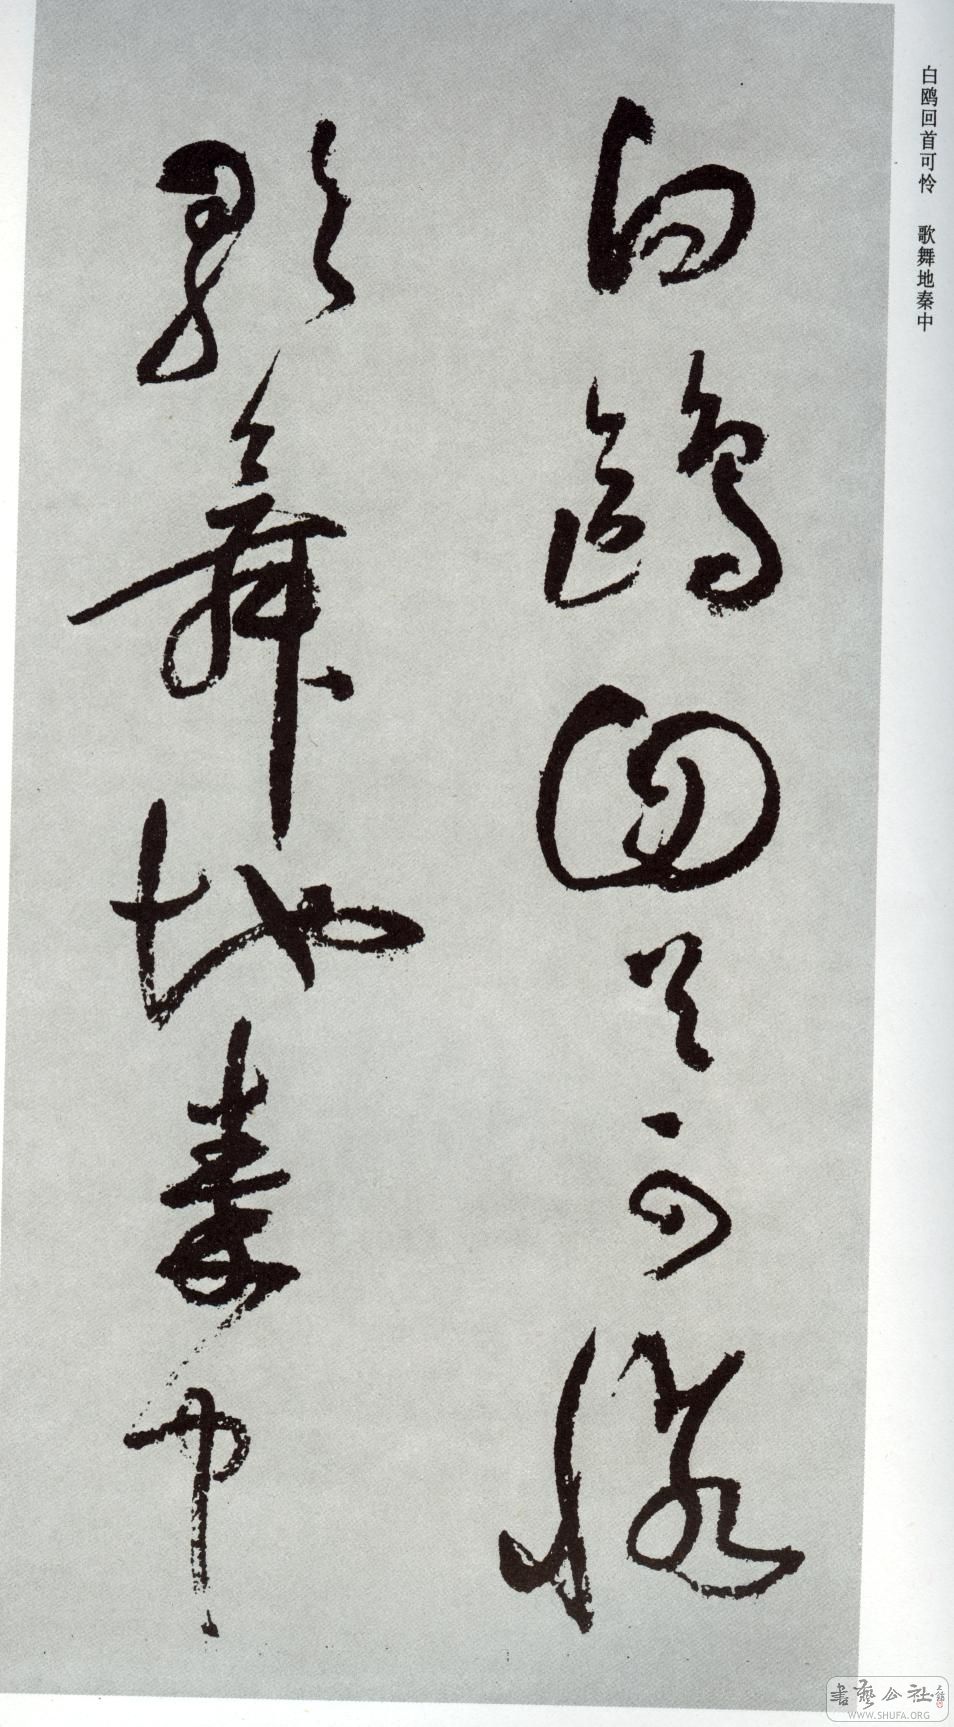 白鸥回首可怜 歌舞地秦中
白鷗回首可憐
歌舞地秦中
書藝公社
WWW.SHUFA.ORG